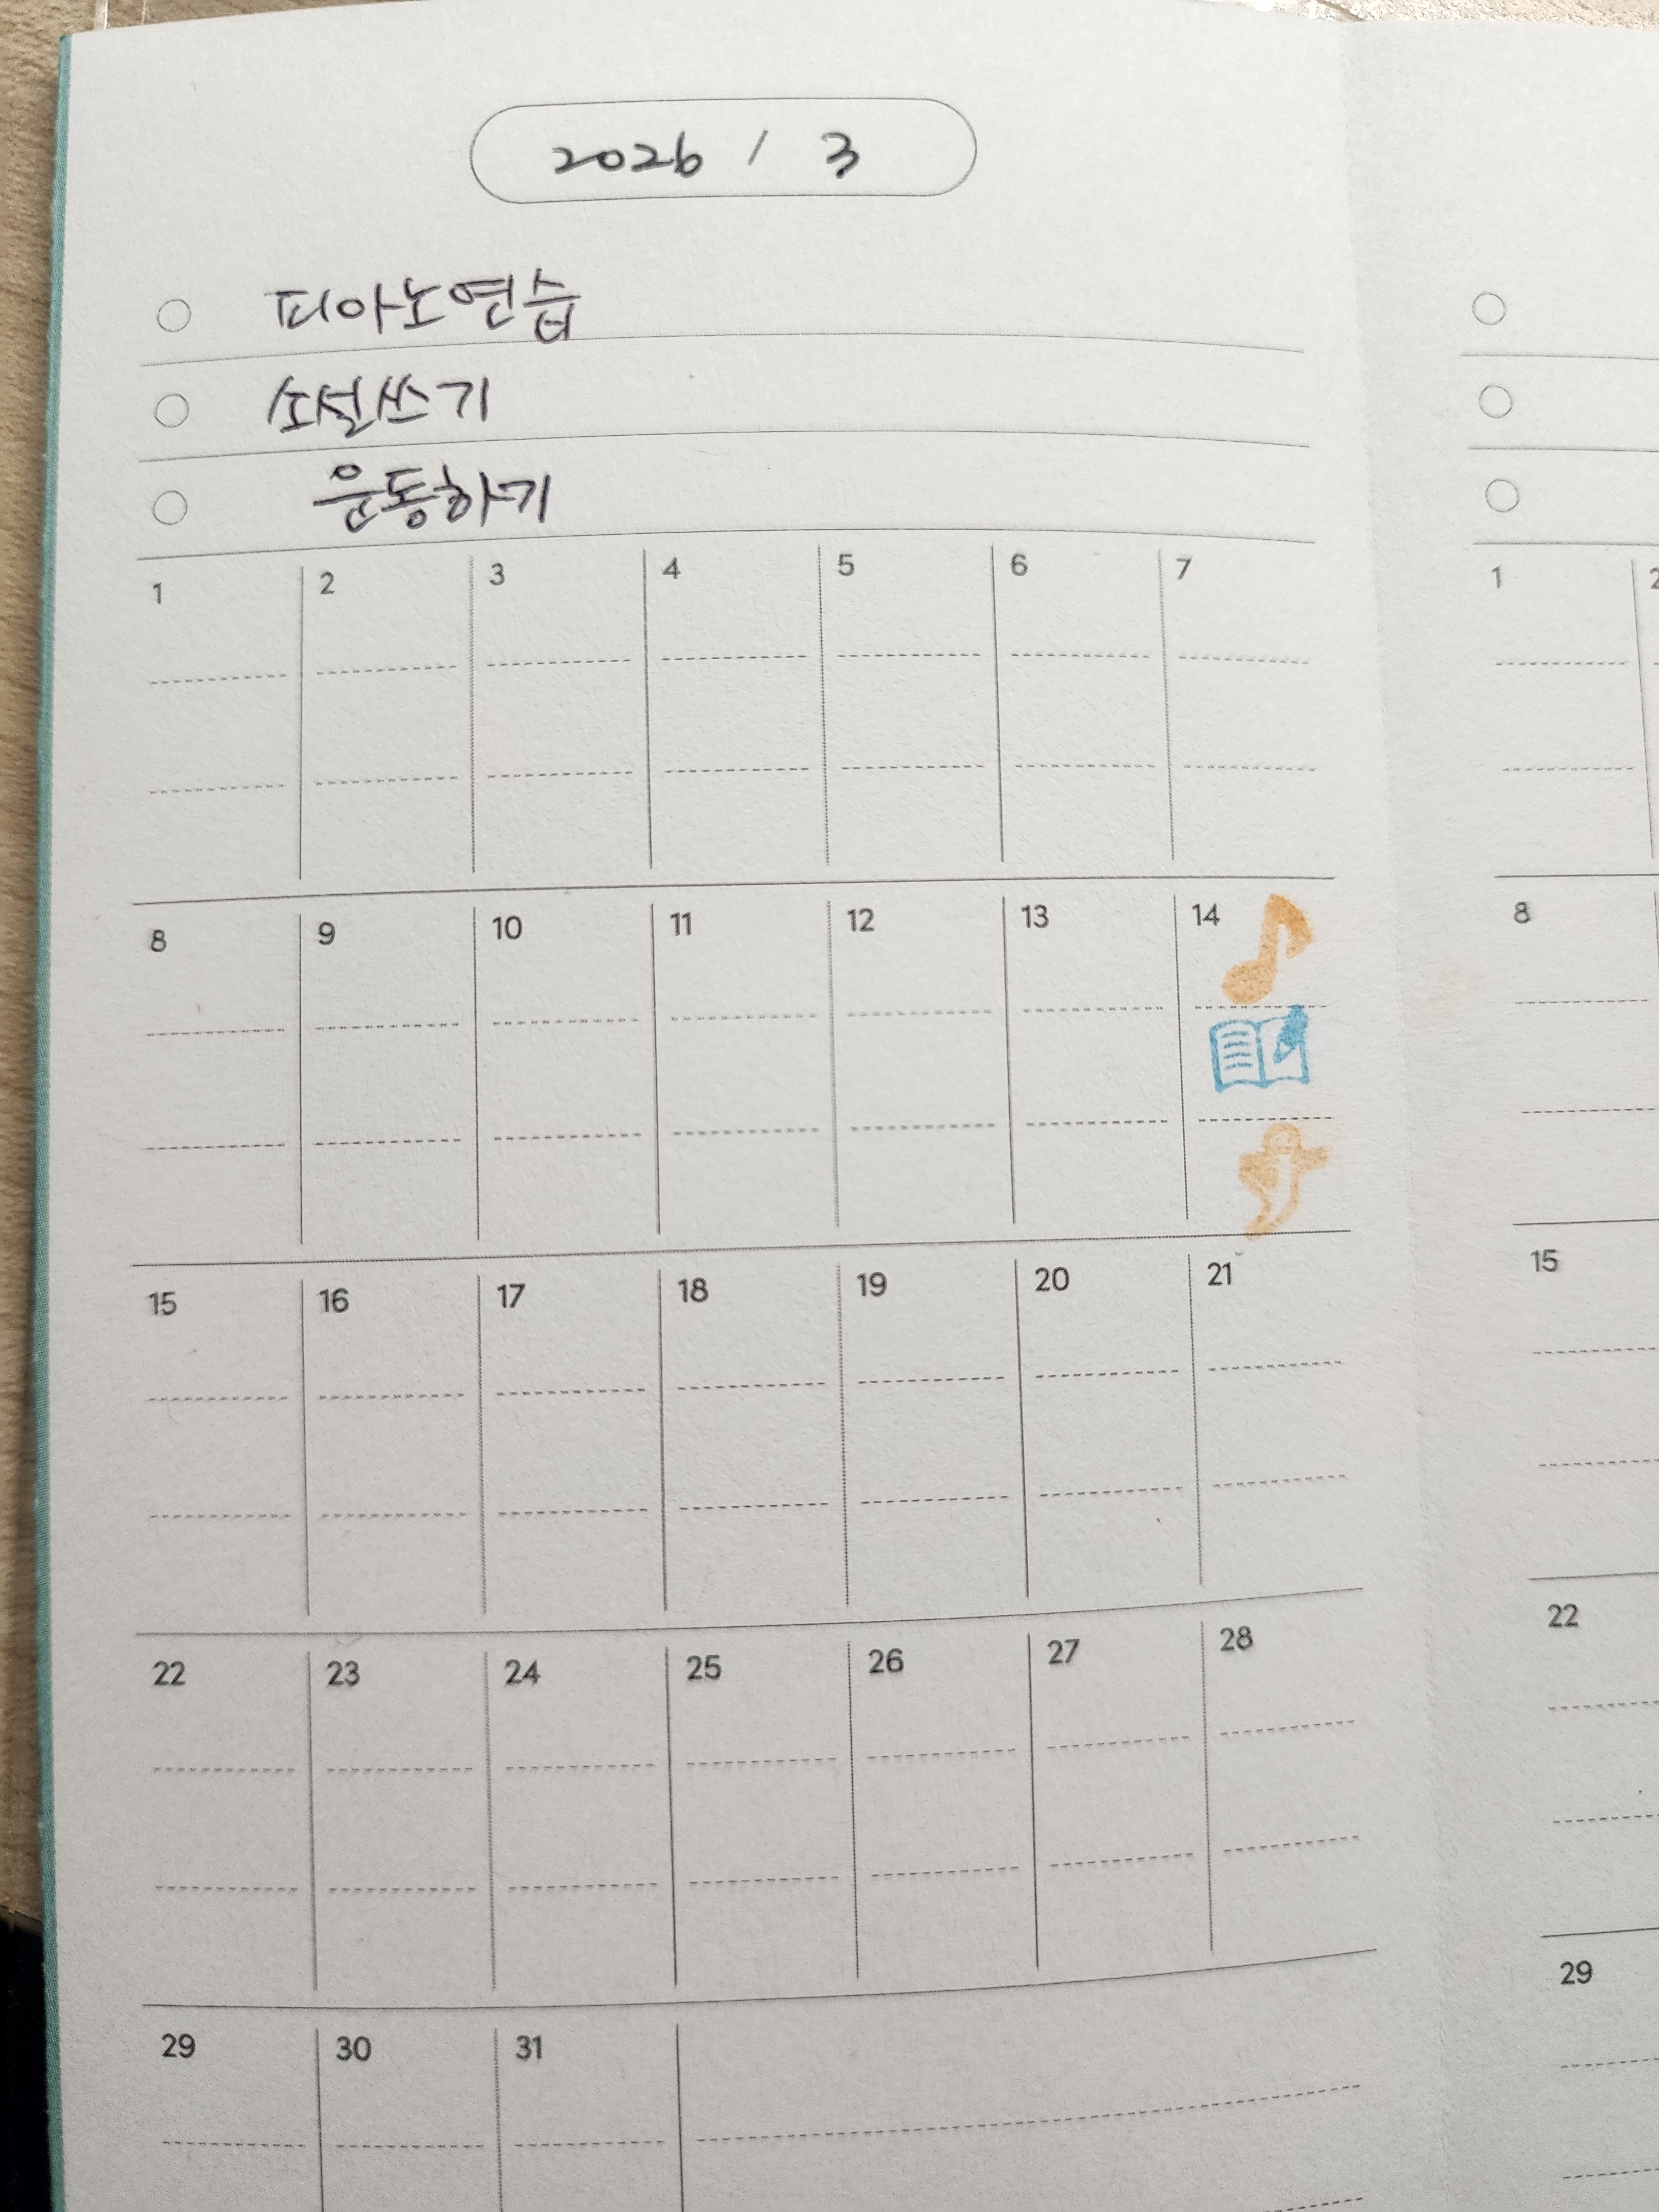 2026 / 3
피아노연습
소설쓰기
운동하기
1 2 3 4 5 6 7
8 9 10 11 12 13 14
15 16 17 18 19 20 21
22 23 24 25 26 27 28
29 30 31
1 2
8
15
22
29